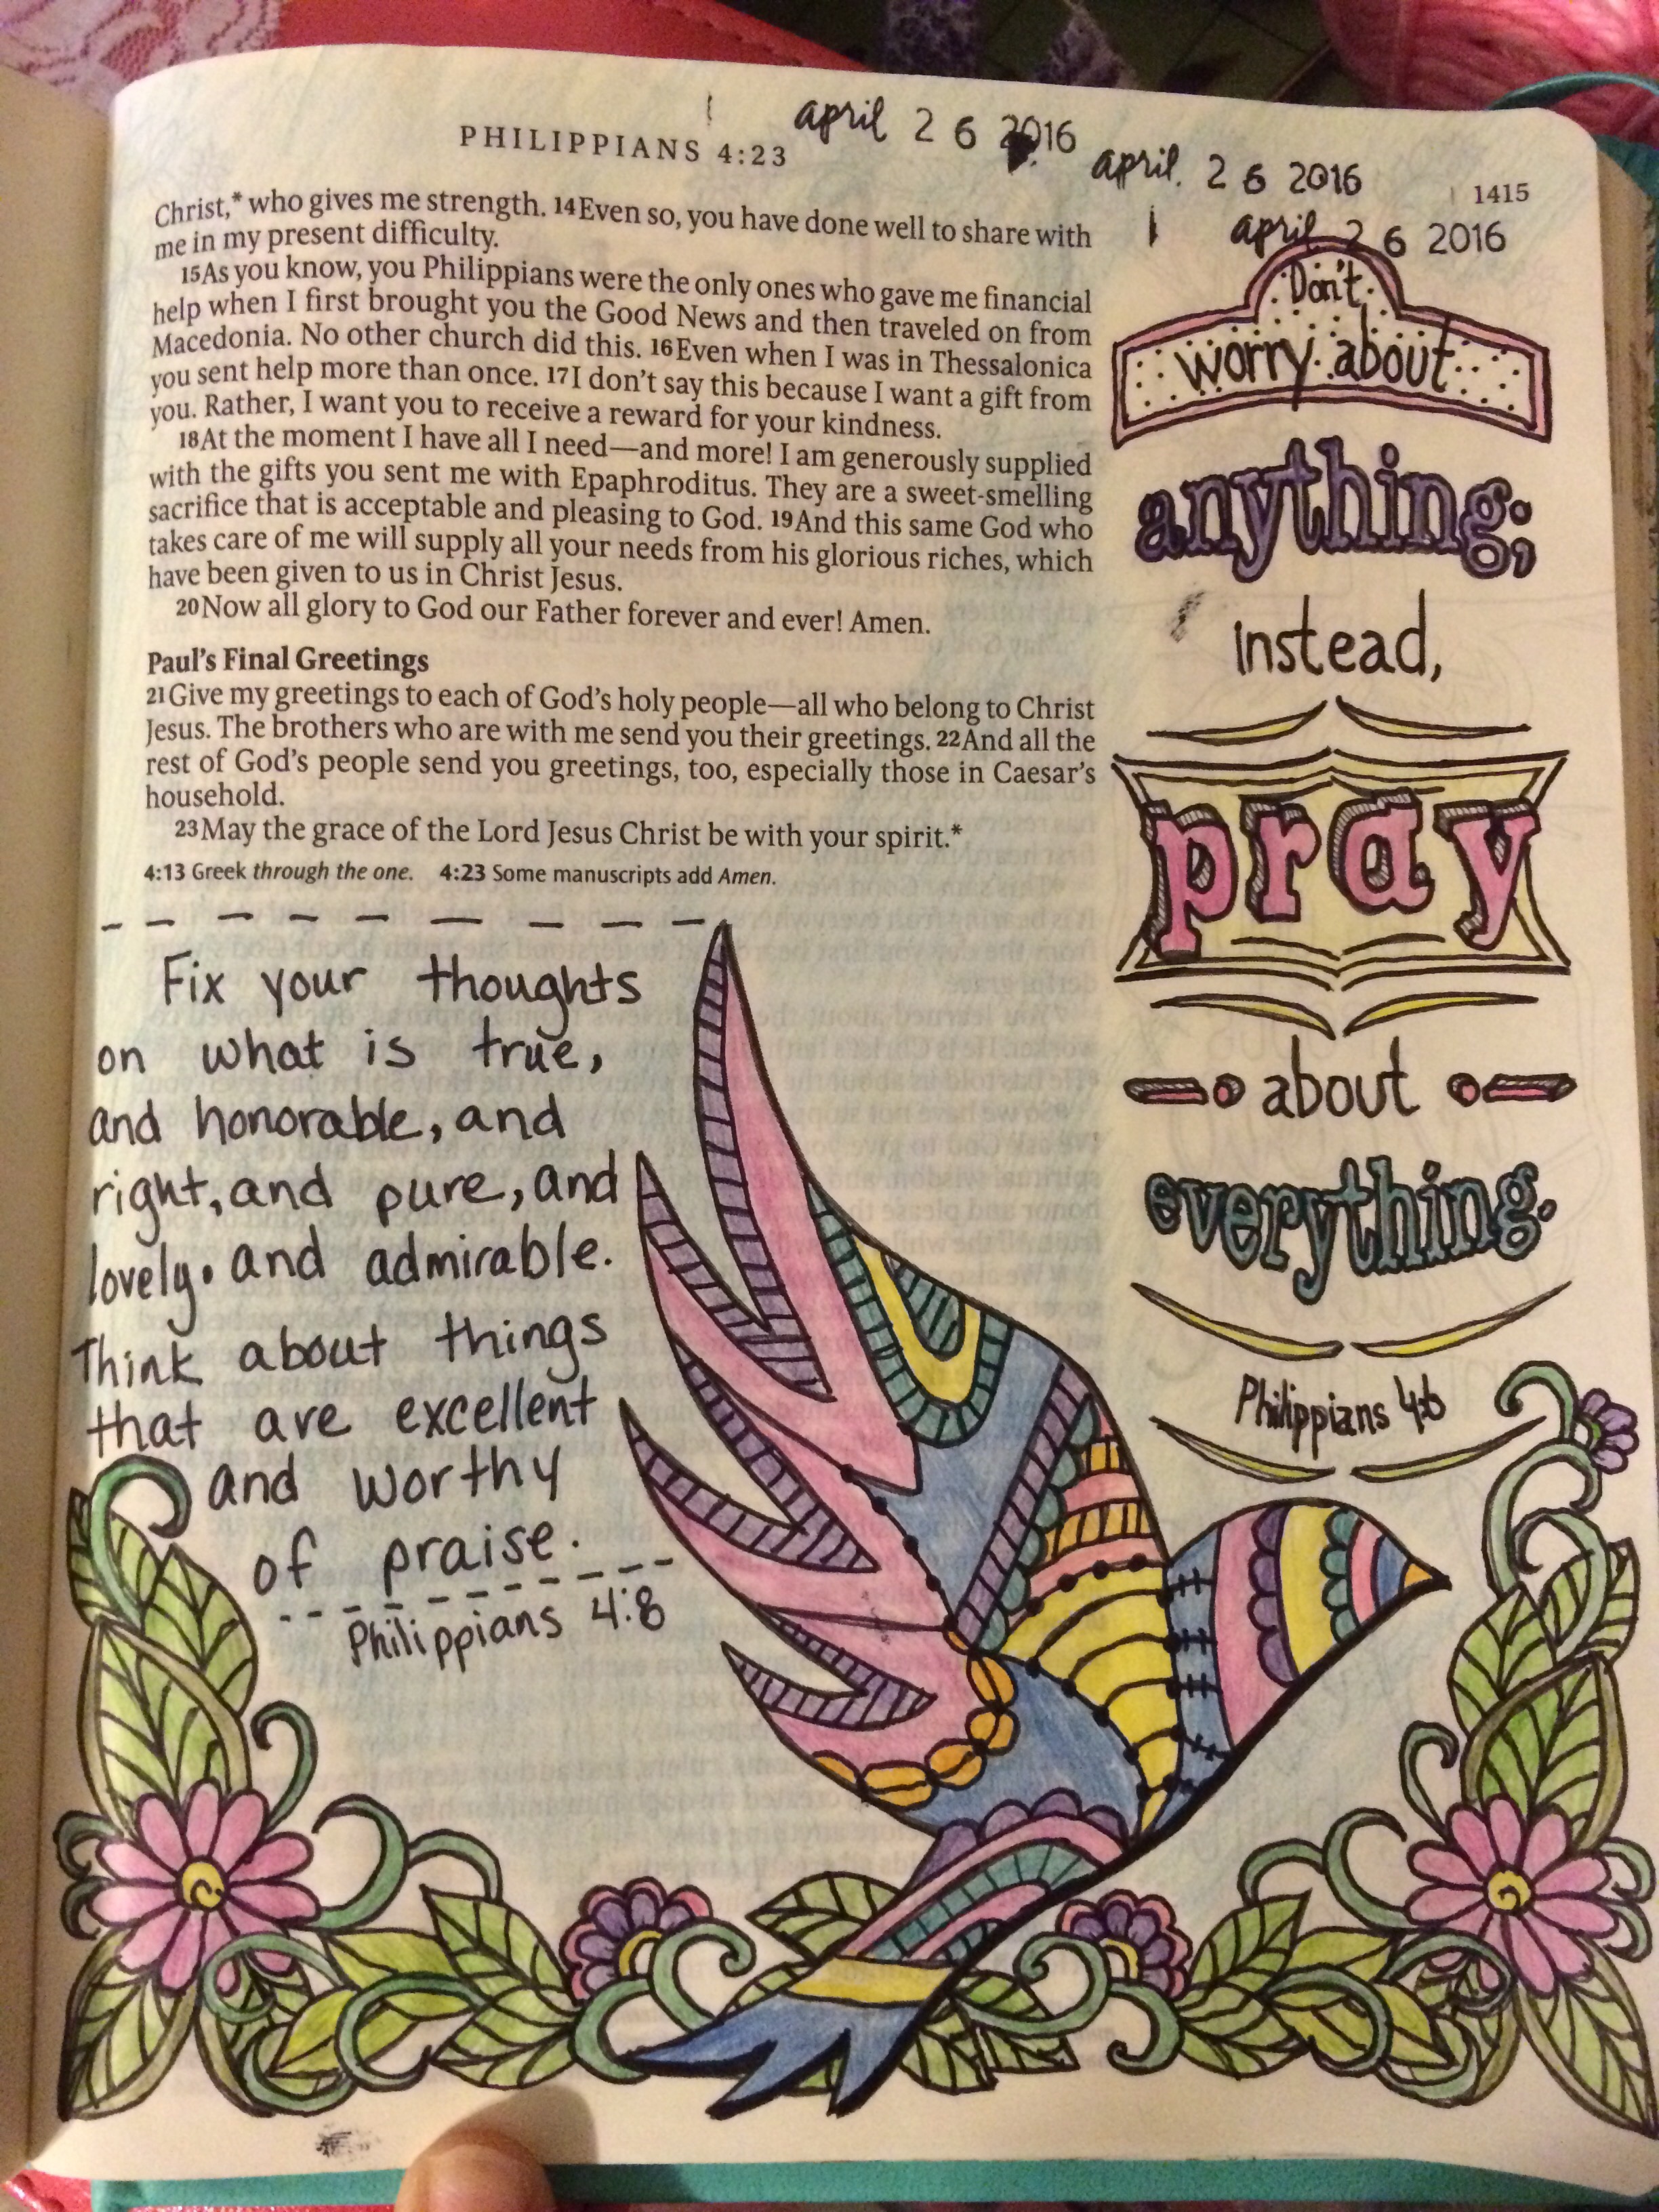 PHILIPPIANS 4:23
april 26 2016
april. 26 2016
1415
april 26 2016
Christ,* who gives me strength. 14Even so, you have done well to share with
me in my present difficulty.
15As you know, you Philippians were the only ones who gave me financial
help when I first brought you the Good News and then traveled on from
Macedonia. No other church did this. 16Even when I was in Thessalonica
you sent help more than once. 17I don't say this because I want a gift from
you. Rather, I want you to receive a reward for your kindness.
18At the moment I have all I need—and more! I am generously supplied
with the gifts you sent me with Epaphroditus. They are a sweet-smelling
sacrifice that is acceptable and pleasing to God. 19And this same God who
takes care of me will supply all your needs from his glorious riches, which
have been given to us in Christ Jesus.
20Now all glory to God our Father forever and ever! Amen.
Paul's Final Greetings
21Give my greetings to each of God's holy people—all who belong to Christ
Jesus. The brothers who are with me send you their greetings. 22And all the
rest of God's people send you greetings, too, especially those in Caesar's
household.
23May the grace of the Lord Jesus Christ be with your spirit.*
4:13 Greek through the one. 4:23 Some manuscripts add Amen.
Fix your thoughts
on what is true,
and honorable, and
right, and pure, and
lovely. and admirable.
Think about things
that are excellent
and worthy
of praise.
Philippians 4:8
Don't
worry about
anything;
instead,
pray
about
everything.
Philippians 4:6